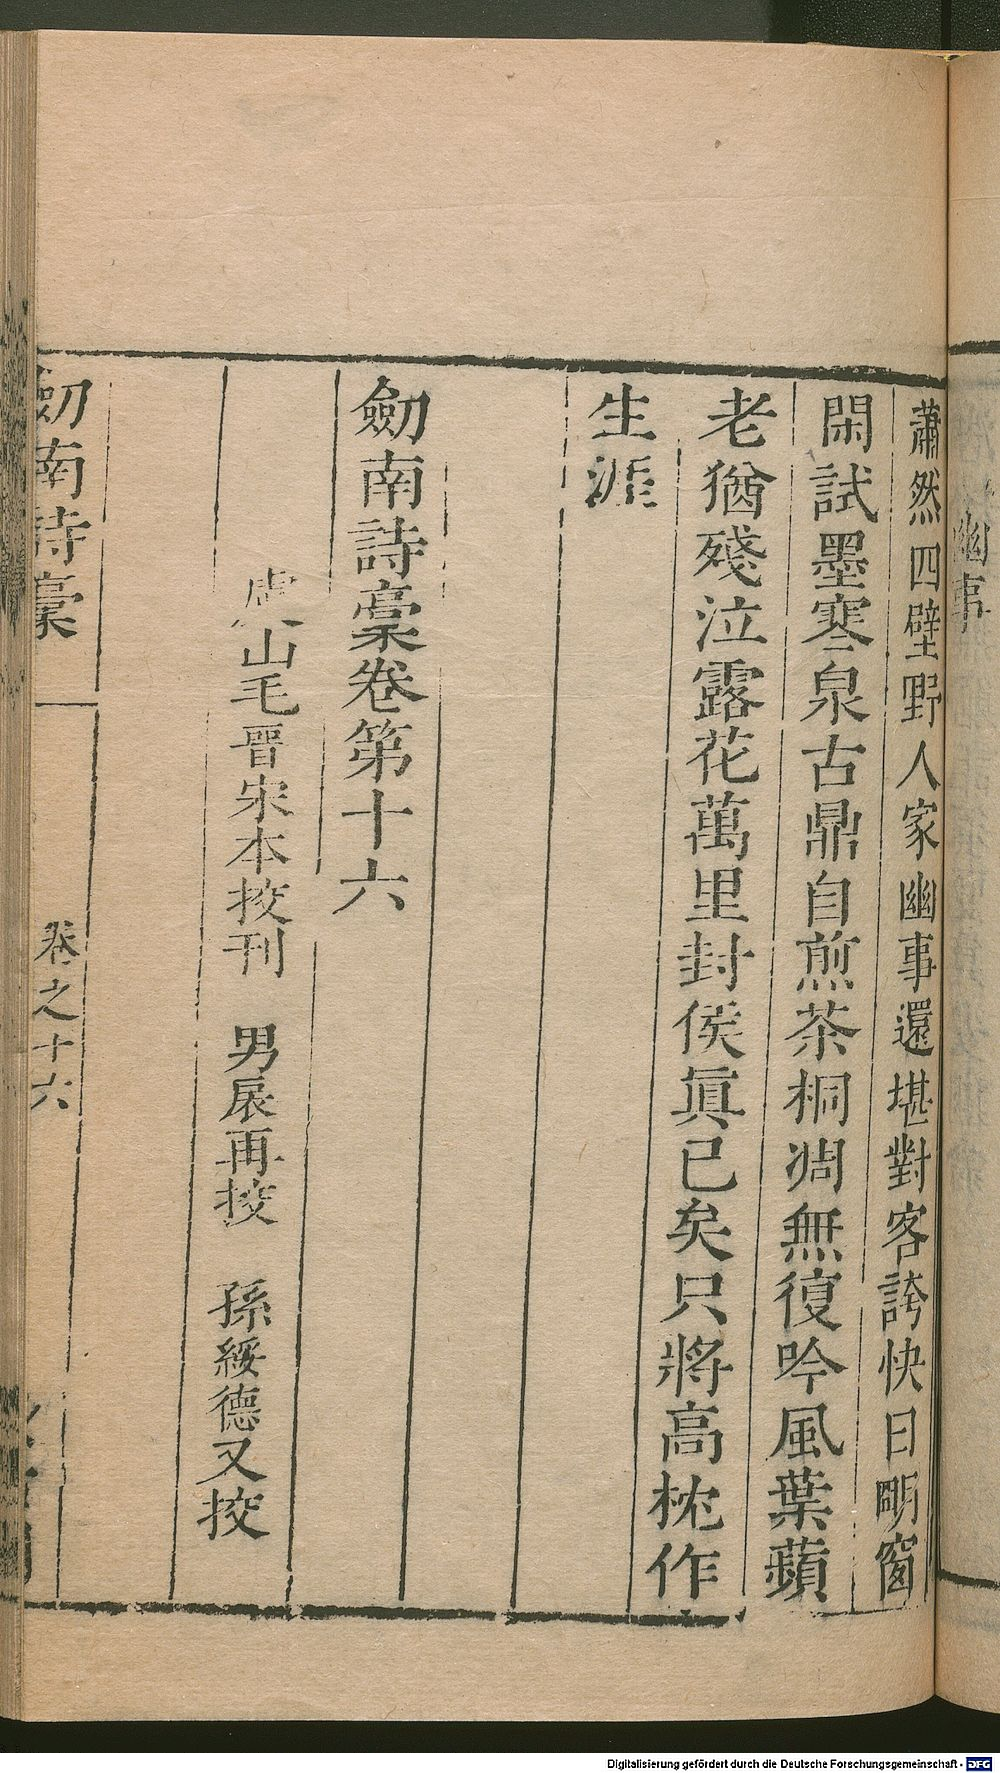 幽事
蕭然四壁野人家幽事還堪對客誇快日明窗
閑試墨寒泉古鼎自煎茶桐凋無復吟風葉蘋
老猶殘泣露花萬里封侯眞已矣只將高枕作
生涯
劒南詩稾卷第十六
虞山毛晉宋本挍刊 男扆再挍 孫綏德又挍
劒南詩稾 卷之十六
Digitalisierung gefördert durch die Deutsche Forschungsgemeinschaft - DFG